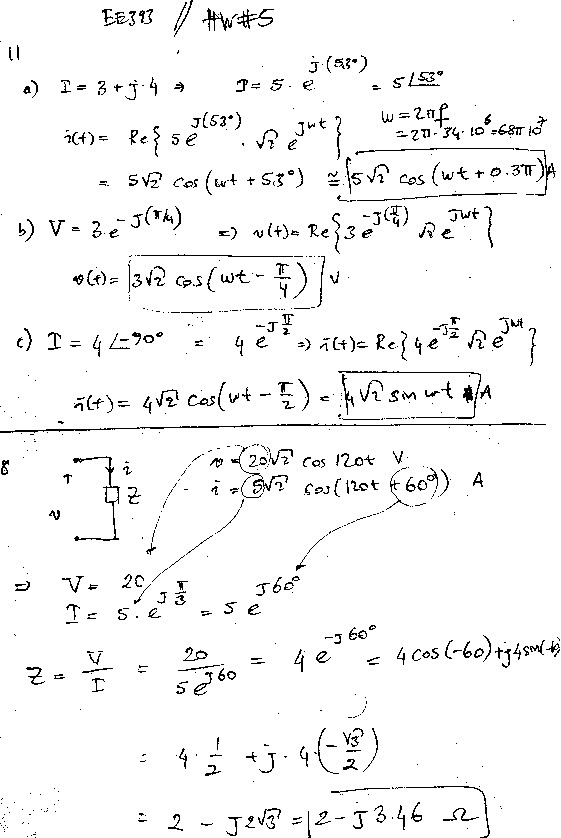 EE393 // HW#5
11
a) I = 3 + j·4 ⇒ I = 5·e^{j·(53°)} = 5∠53°
i(t) = Re{5e^{j(53°)}·√2 e^{jωt}} ω = 2πf
= 2π·34·10^6 = 68π10^7
= 5√2 cos(ωt + 53°) ≅ 5√2 cos(ωt + 0.3π) A
b) V = 3·e^{-j(π/4)} ⇒ v(t) = Re{3e^{-j(π/4)} √2 e^{jωt}}
v(t) = 3√2 cos(ωt - π/4) V
c) I = 4∠-90° = 4e^{-jπ/2} ⇒ i(t) = Re{4e^{-jπ/2} √2 e^{jωt}}
i(t) = 4√2 cos(ωt - π/2) = 4√2 sin ωt A
8 v = 20√2 cos 120t V
i Z v i = 5√2 cos(120t + 60°) A
⇒ V = 20
I = 5·e^{jπ/3} = 5e^{j60°}
Z = V/I = 20/5e^{j60} = 4e^{-j60°} = 4cos(-60) + j4sin(-60)
= 4·1/2 + j·4(-√3/2)
= 2 - j2√3 = 2 - j3.46 Ω